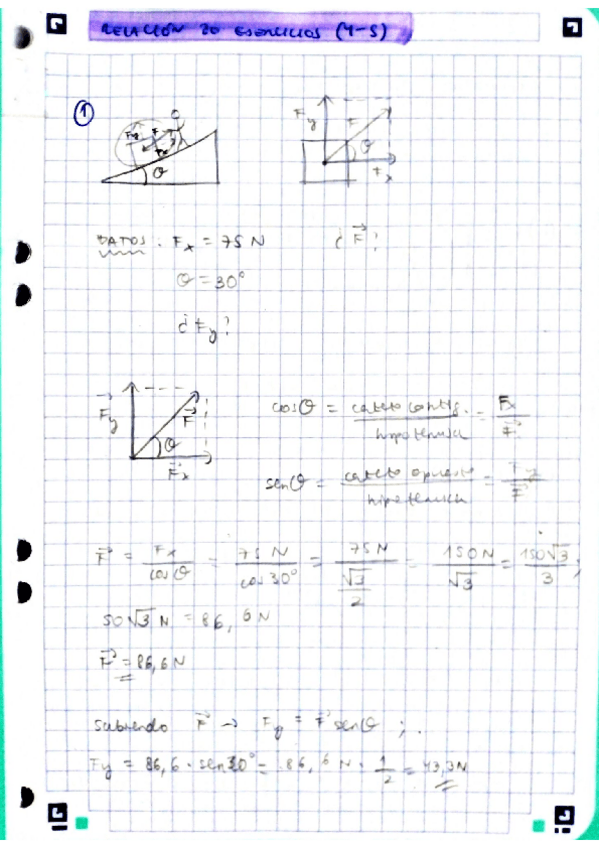 RELACIÓN 20 EJERCICIOS (4-5)
①
Fy F θ Fx
θ
DATOS: Fx = 75 N ¿F⃗?
θ = 30°
¿Fy?
F⃗y F⃗ θ F⃗x
cosθ = cateto contig. / hipotenusa = Fx / F⃗
senθ = cateto opuesto / hipotenusa = Fy / F⃗
F⃗ = Fx / cosθ = 75 N / cos 30° = 75 N / (√3 / 2) = 150 N / √3 = 150√3 / 3 ;
50√3 N = 86,6 N
F⃗ = 86,6 N
Sabiendo F⃗ → Fy = F⃗ senθ ;
Fy = 86,6 · sen30° = 86,6 N · 1/2 = 43,3N